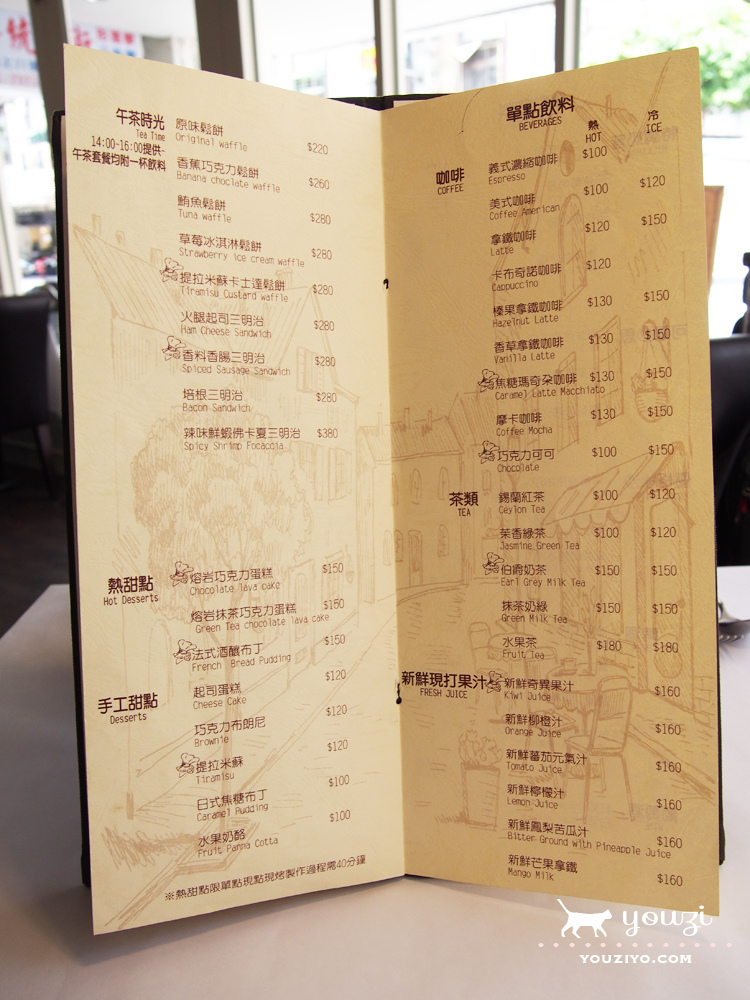 統
午茶時光
Tea Time
14:00-16:00提供-
午茶套餐均附一杯飲料
原味鬆餅 $220
Original waffle
香蕉巧克力鬆餅 $260
Banana choclate waffle
鮪魚鬆餅 $280
Tuna waffle
草莓冰淇淋鬆餅 $280
Strawberry ice cream waffle
提拉米蘇卡士達鬆餅 $280
Tiramisu Custard waffle
火腿起司三明治 $280
Ham Cheese Sandwich
香料香腸三明治 $280
Spiced Sausage Sandwich
培根三明治 $280
Bacon Sandwich
辣味鮮蝦佛卡夏三明治 $380
Spicy Shrimp Focaccia
熱甜點
Hot Desserts
熔岩巧克力蛋糕 $150
Chocolate lava cake
熔岩抹茶巧克力蛋糕 $150
Green Tea chocolate lava cake
法式酒釀布丁 $150
French Bread Pudding
手工甜點
Desserts
起司蛋糕 $120
Cheese Cake
巧克力布朗尼 $120
Brownie
提拉米蘇 $120
Tiramisu
日式焦糖布丁 $100
Caramel Pudding
水果奶酪 $100
Fruit Panna Cotta
※熱甜點限單點現點現烤製作過程需40分鐘
單點飲料
BEVERAGES
熱 冷
HOT ICE
咖啡
COFFEE
義式濃縮咖啡 $100
Espresso
美式咖啡 $100 $120
Coffee American
拿鐵咖啡 $120 $150
Latte
卡布奇諾咖啡 $120
Cappuccino
榛果拿鐵咖啡 $130 $150
Hazelnut Latte
香草拿鐵咖啡 $130 $150
Vanilla Latte
焦糖瑪奇朵咖啡 $130 $150
Caramel Latte Macchiato
摩卡咖啡 $130 $150
Coffee Mocha
巧克力可可 $100 $150
Chocolate
茶類
TEA
錫蘭紅茶 $100 $120
Ceylon Tea
茉香綠茶 $100 $120
Jasmine Green Tea
伯爵奶茶 $150 $150
Earl Grey Milk Tea
抹茶奶綠 $150 $150
Green Milk Tea
水果茶 $180 $180
Fruit Tea
新鮮現打果汁
FRESH JUICE
新鮮奇異果汁 $160
Kiwi Juice
新鮮柳橙汁 $160
Orange Juice
新鮮蕃茄元氣汁 $160
Tomato Juice
新鮮檸檬汁 $160
Lemon Juice
新鮮鳳梨苦瓜汁 $160
Bitter Ground with Pineapple Juice
新鮮芒果拿鐵 $160
Mango Milk
youzi
YOUZIYO.COM